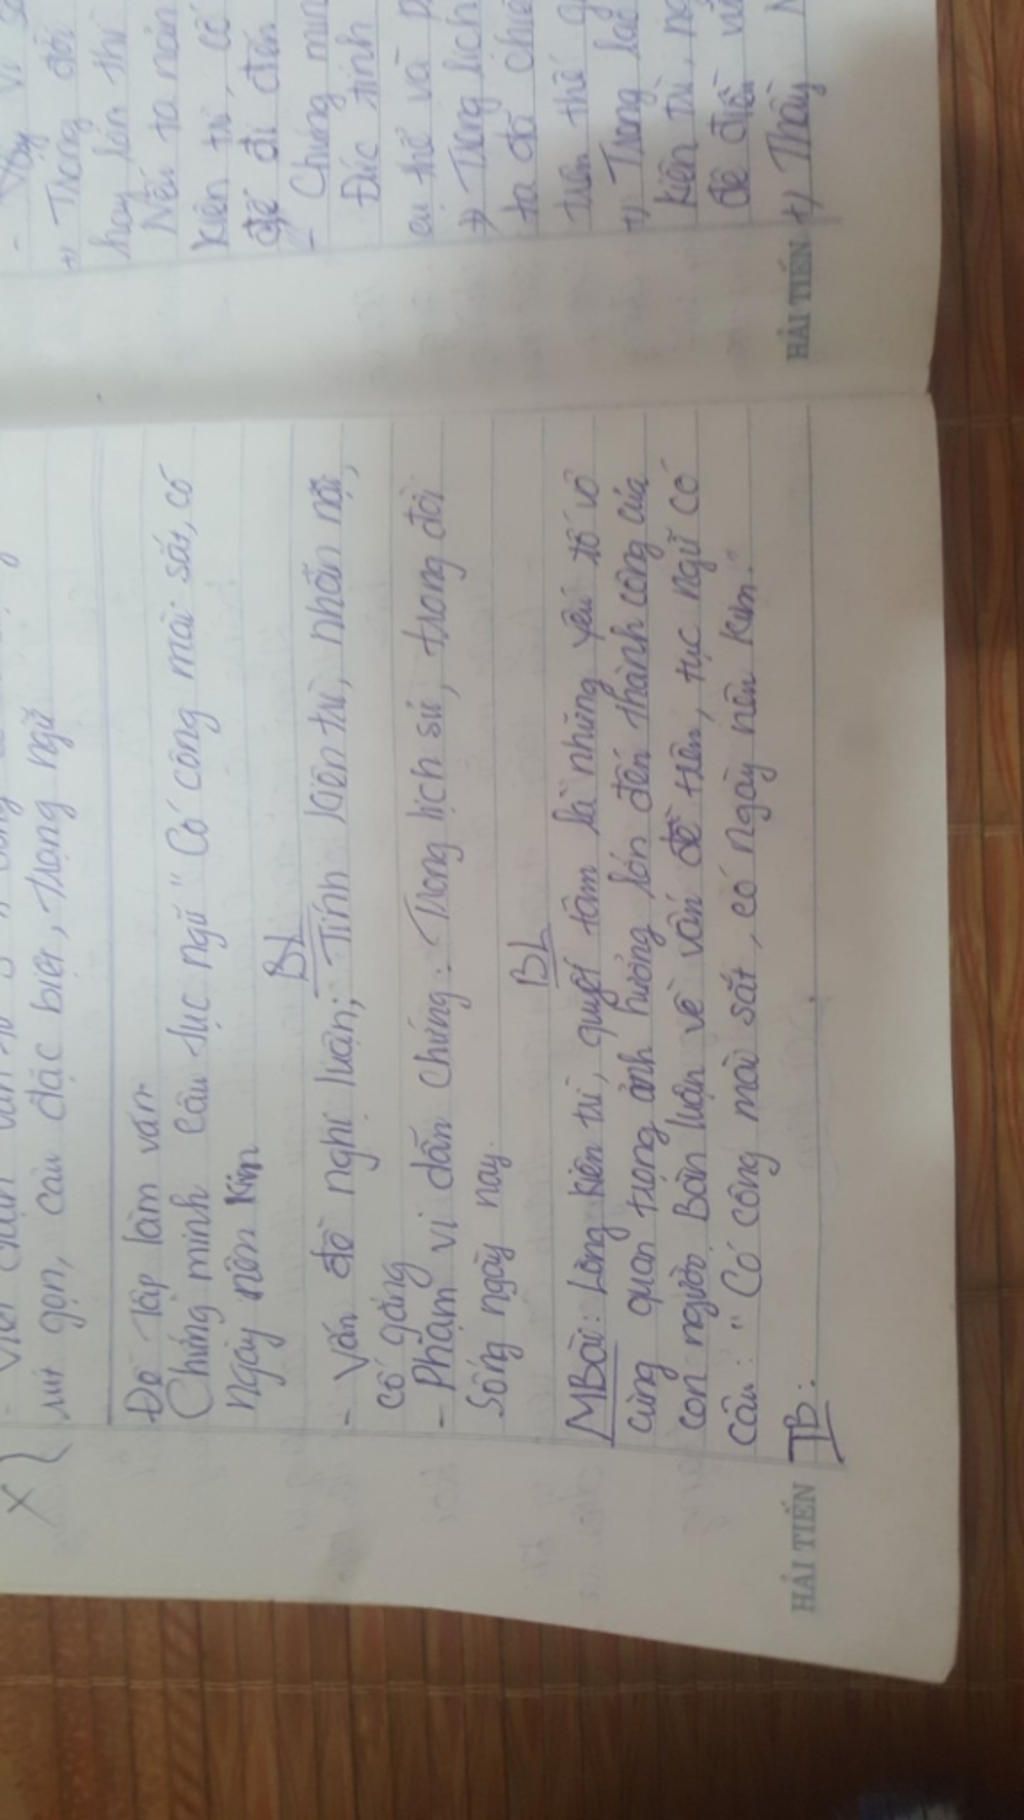 rút gọn, câu đặc biệt, trạng ngữ
Đề tập làm văn
Chứng minh câu tục ngữ "Có công mài sắt, có
ngày nên kim
BL
- Vấn đề nghị luận: Tính kiên trì, nhẫn nại,
cố gắng
- Phạm vi dẫn chứng: Trong lịch sử, trong đời
sống ngày nay.
BL
MBài: Lòng kiên trì, quyết tâm là những yếu tố vô
cùng quan trọng ảnh hưởng lớn đến thành công của
con người. Bàn luận về vấn đề trên, tục ngữ có
câu: "Có công mài sắt, có ngày nên kim."
TB:
HẢI TIẾN
+) Trong đời
hay lớn thì
Nếu ta
kiên trì, cố
để đi đến
- Chứng min
Đức tính
+) Trong lịch
ta đã chiế
trên thế g
+) Trong
kiên trì, ng
để
+) Thầy N
HẢI TIẾN